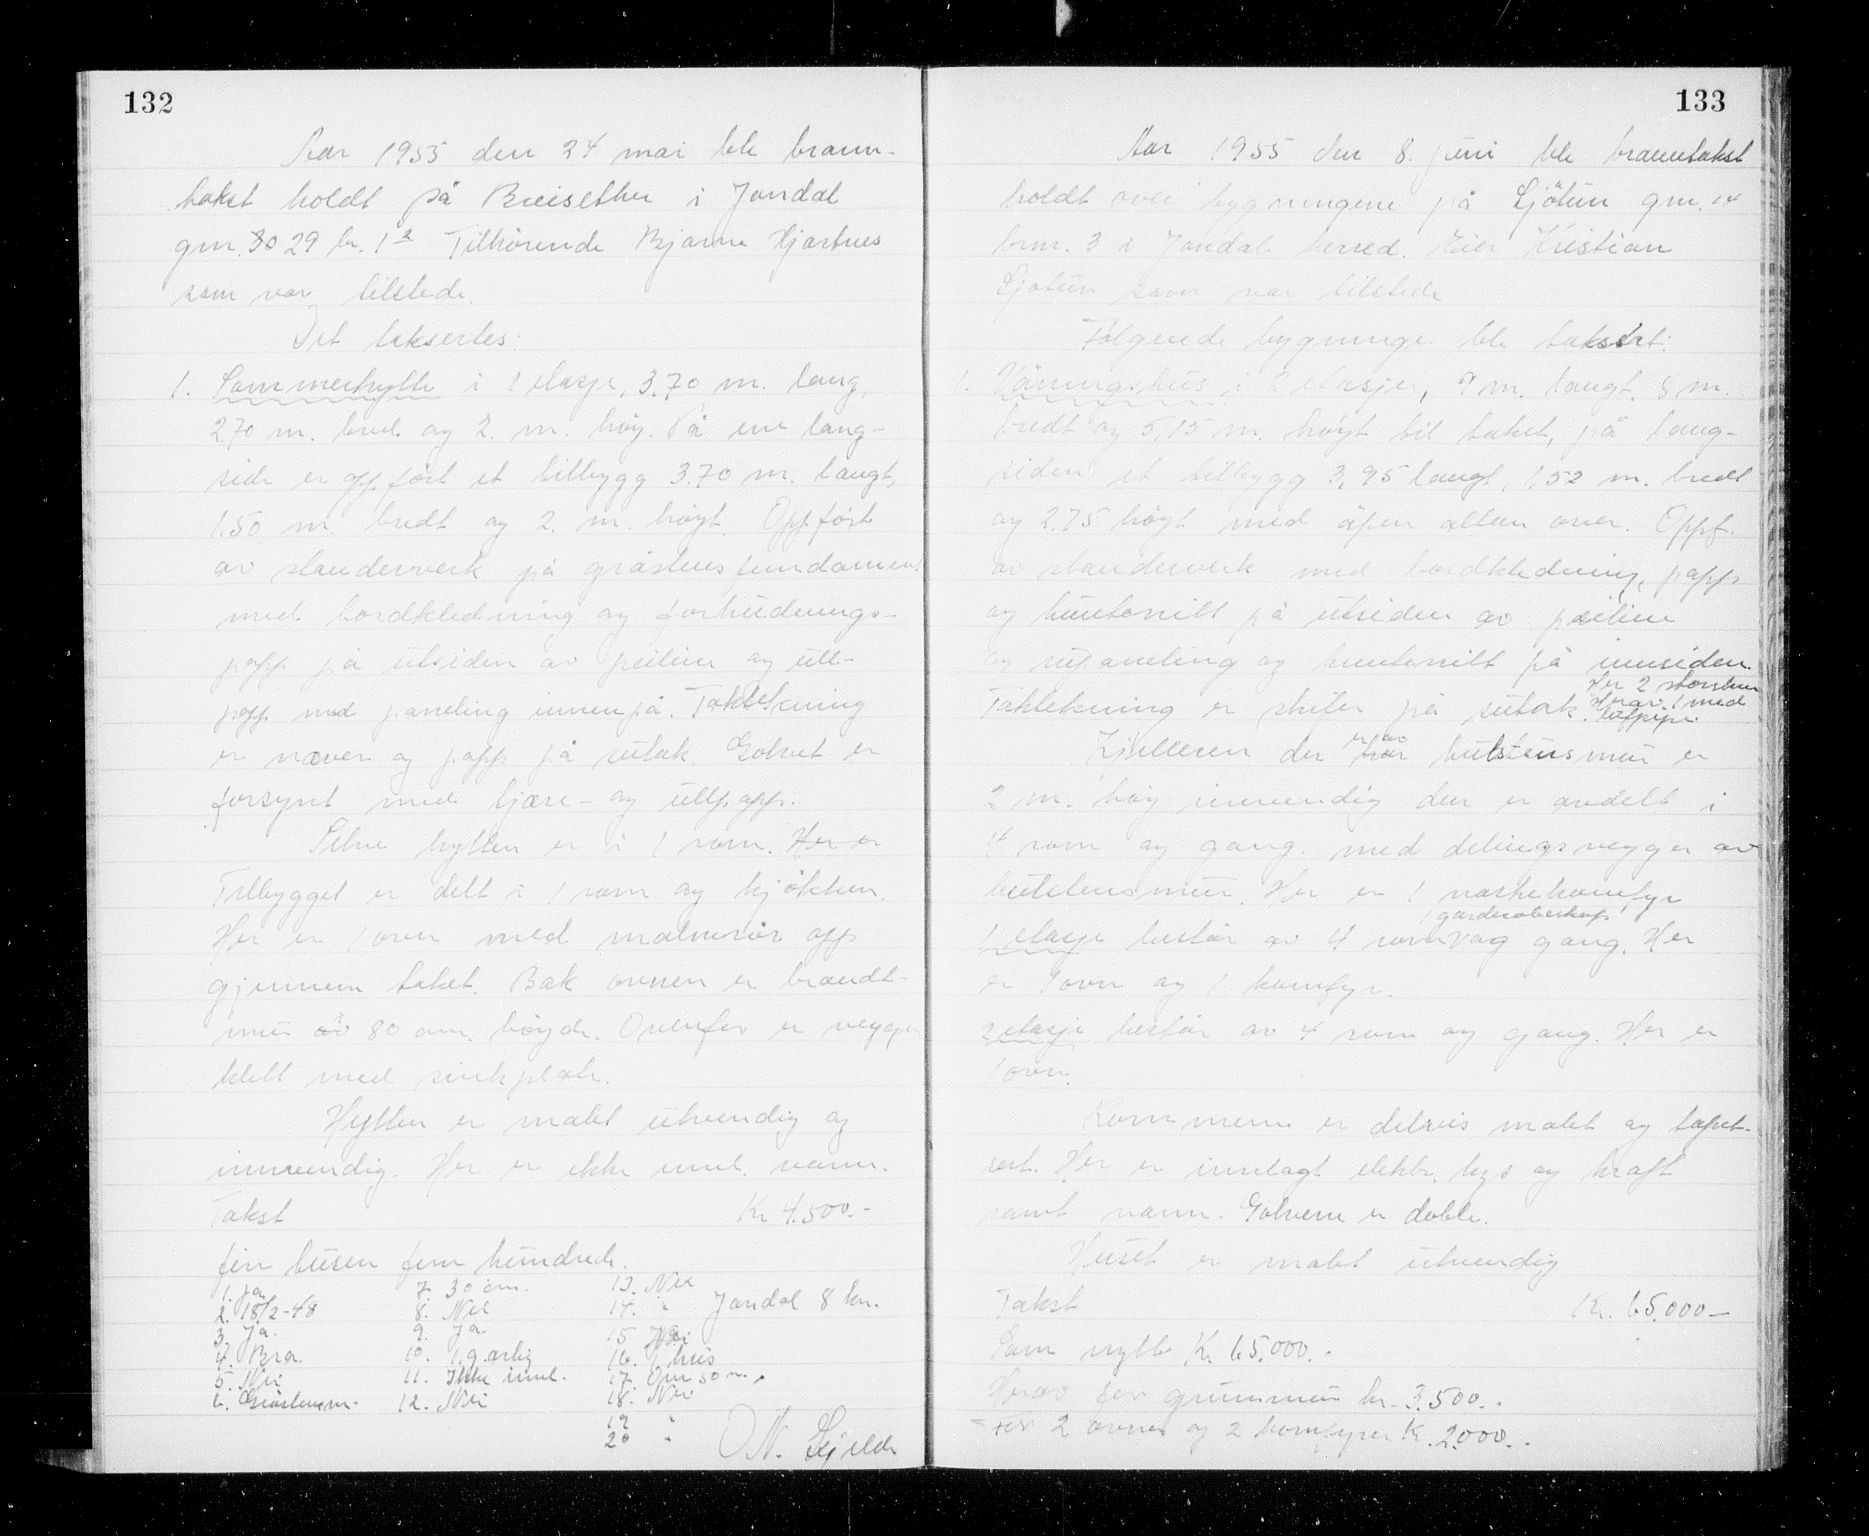 132
Aar 1955 den 24 mai ble brann-
takst holdt på Breisether i Jondal
gnr. 30 29 br. 1² Tilhørende Bjarne Hjartnes
som var tilstede.
Det taksertes:
1. Sommerhytte i 1 etasje, 3,70 m. lang,
2.70 m. bred og 2. m. høy. På ene lang-
side er oppført et tilbygg 3.70 m. langt,
1.50 m. bredt og 2. m. høyt. Oppført
av standerverk på gråstensfundament
med bordkledning og forhudnings-
papp på utsiden av peiline og ull-
papp med paneling innenpå. Taktekning
er næver og papp på sutak. Golvet er
forsynt med tjære- og ullpapp.
Selve hytten er i 1 rom. Her er
Tilbygget er delt i 1 rom og kjøkken.
Her er 1 ovn med malmrør opp
gjennem taket. Bak ovnen er brandt-
mur av 80 cm. høyde. Ovenfor er veggen
kledt med sinkplate.
Hytten er malt utvendig og
innvendig. Her er ikke innl. vann.
Takst Kr. 4.500.-
fire tusen fem hundrede.
1. Ja 7. 30 cm. 13. Nei
2. 18/2-48 8. Nei 14. " Jondal 8 km.
3. Ja. 9. Ja 15 Nei
4. Bra. 10. 1 g. årlig 16. 1 hus
5. Nei 11. Ikke innl. 17. Om 50 m.
6. Gråstensm. 12. Nei 18. Nei
19 "
20 " O N. Sjelde
133
Aar 1955 den 8. juni ble branntakst
holdt over bygningene på Sjötun gnr. 14
brnr. 3 i Jondal herred. Eier Kristian
Sjøtun som var tilstede
Følgende bygninger ble taksert:
1. Våningshus i 2 etasjer, 9 m. langt, 8 m.
bredt og 5,15 m. høyt til taket, på lang-
siden et tilbygg 3,95 langt, 1,52 m. bredt
og 2.75 høyt med åpen altan over. Oppf.
av standerverk med bordkledning, papp
og huntonitt på utsiden av peiline
og rupaneling og huntonitt på innsiden.
Taktekning er skifer på sutak. Her 2 skorstein
Herav 1 med
luftpipe.
Kjelleren der er av hulstensmur er
2 m. høy innvendig den er avdelt i
4 rom og gang. med delingsvegger av
hulstensmur. Her er 1 vaskekomfyr
1 garderobeskap
1 etasje består av 4 rom og gang. Her
er 1 ovn og 1 komfyr.
2 etasje består av 4 rom og gang. Her er
1 ovn.
Rommene er delvis malt og tapet-
sert. Her er innlagt elektr. lys og kraft
samt vann. Golvene er doble.
Huset er malt utvendig
Takst Kr. 65.000-
Som nytt Kr. 65.000.-
Herav for grunnmur kr. 3.500.-
- for 2 ovner og 2 komfyrer Kr. 2.000.-